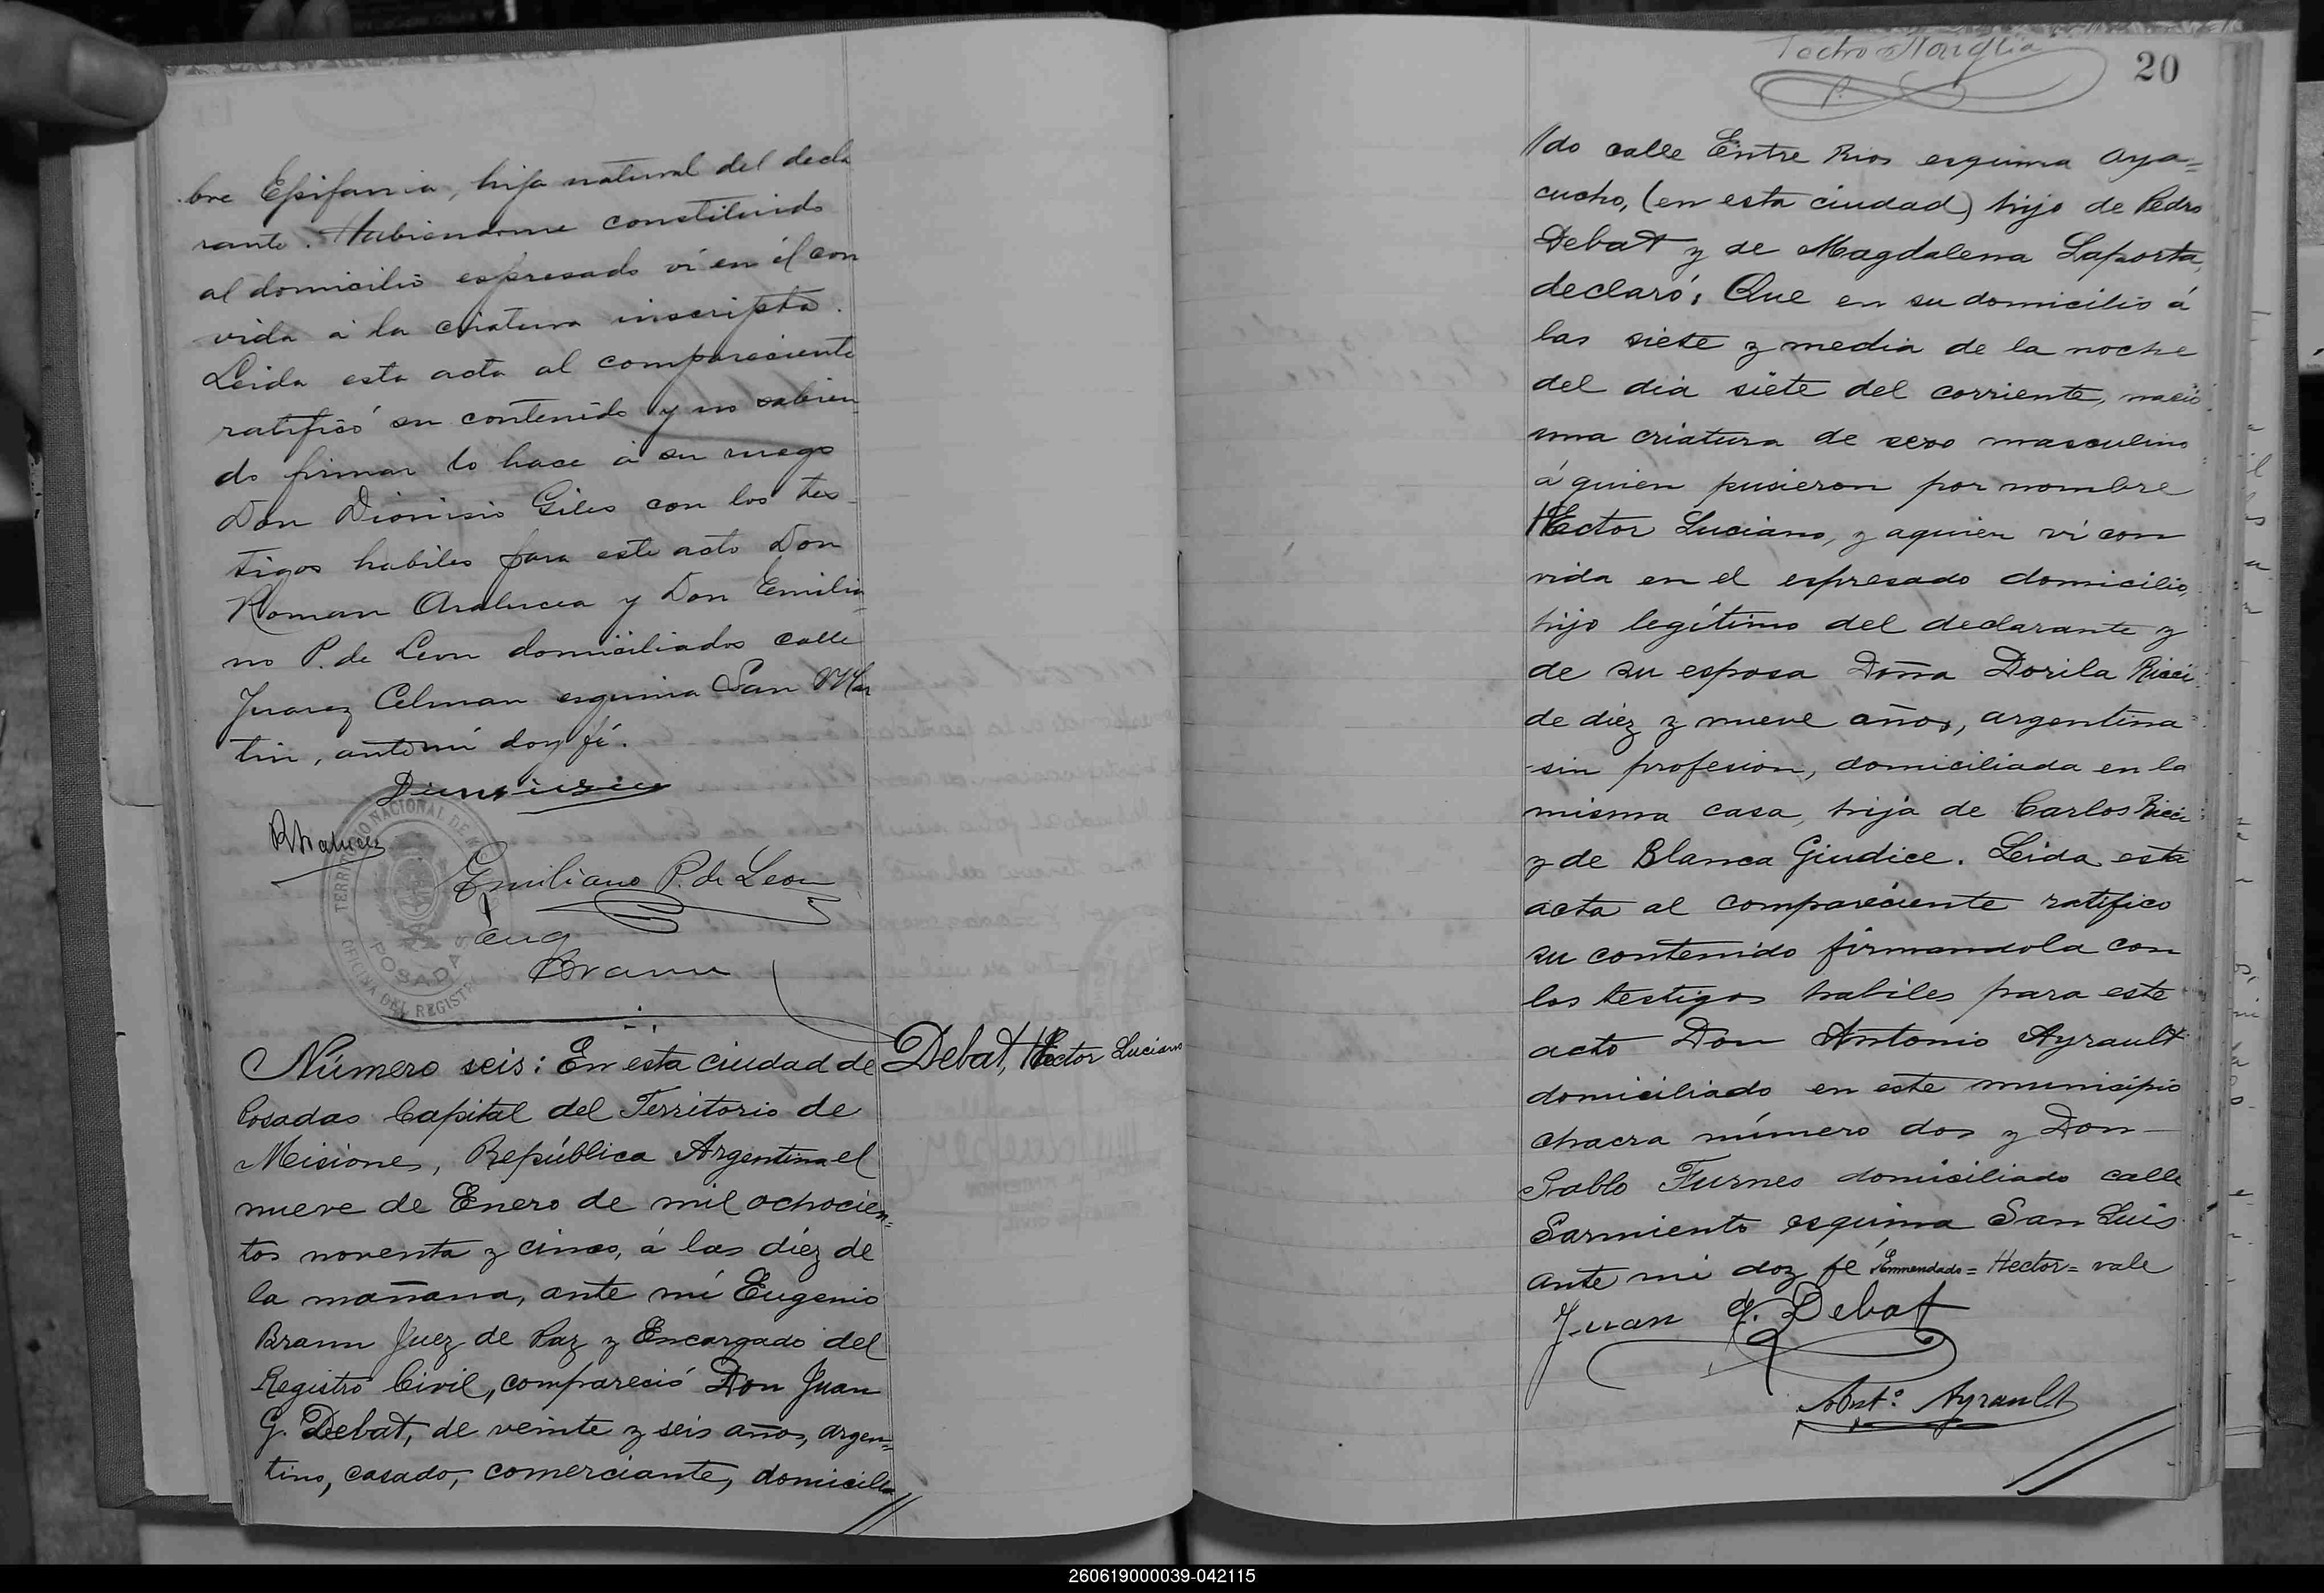 bre Epifania, hija natural del decla
rante. Habiendome constituido
al domicilio espresado ví en él con
vida á la criatura inscripta.
Leida esta acta al compareciente
ratificó su contenido y no sabien
do firmar lo hace á su ruego
Don Dionisio Giles con los tes-
tigos habiles para este acto Don
Roman Aralucea y Don Emilia
no P. de Leon domiciliados calle
Juarez Celman esquina San Mar
tin, ante mí doy fé.
Emiliano P. de Leon
Eug
Braun
TERRITORIO NACIONAL DE
POSADAS
OFICINA DEL REGISTRO
Número seis: En esta ciudad de
Posadas Capital del Territorio de
Misiones, República Argentina el
nueve de Enero de mil ochocien=
tos noventa y cinco, á las diez de
la mañana, ante mí Eugenio
Braun Juez de Paz y Encargado del
Registro Civil, compareció Don Juan
G. Debat, de veinte y seis años, argen=
tino, casado, comerciante, domicilia
//
Debat, Hector Luciano
Pedro
20
//do calle Entre Rios esquina Aya=
cucho, (en esta ciudad) hijo de Pedro
Debat y de Magdalena Laporta,
declaró: Que en su domicilio á
las siete y media de la noche
del dia siete del corriente, nació
una criatura de sexo masculino
á quien pusieron por nombre
Hector Luciano, y aquien ví con
vida en el espresado domicilio,
hijo legítimo del declarante y
de su esposa Doña Dorila Ricci
de diez y nueve años, argentina
sin profesion, domiciliada en la
misma casa, hija de Carlos Ricci
y de Blanca Giudice. Leida esta
acta al compareciente ratifico
su contenido firmandola con
los testigos habiles para este
acto Don Antonio Ayrault
domiciliado en este municipio
chacra número dos y Don—
Pablo Furnes domisiliado calle
Sarmiento esquina San Luis
ante mi doy fé Emmendado=Hector=vale
Juan G. Debat
Ant.º Ayrault
//
260619000039-042115